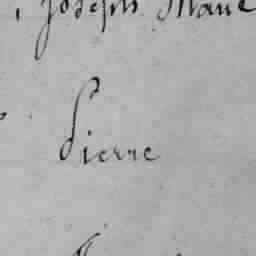 Joseph Marie
Pierre